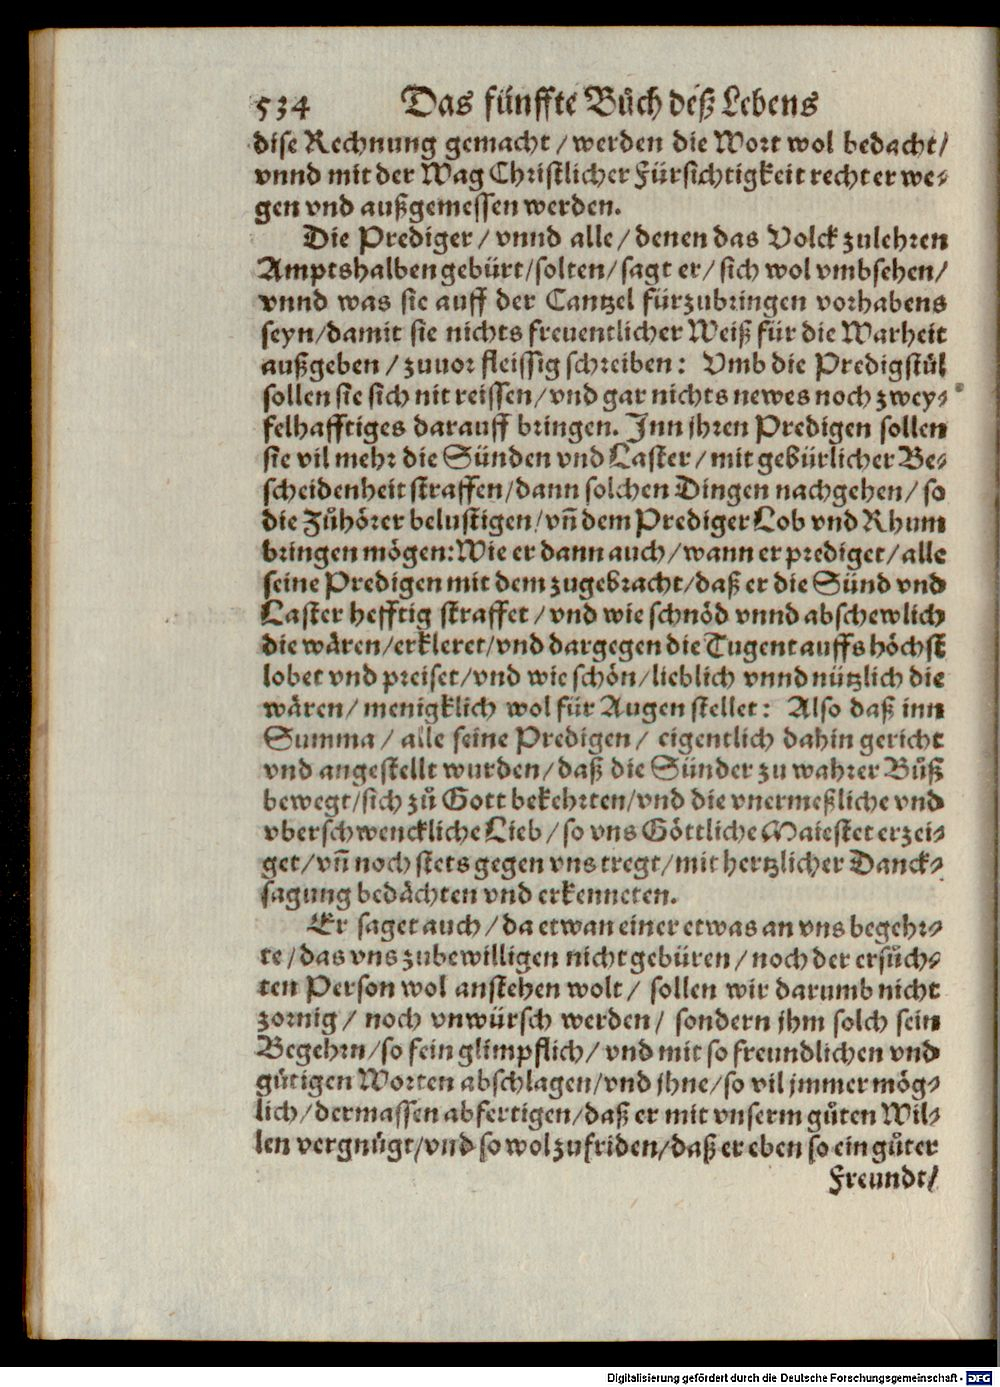 534 Das fünffte Bůch deß Lebens
dise Rechnung gemacht / werden die Wort wol bedacht /
vnnd mit der Wag Christlicher Fürsichtigkeit recht erwe-
gen vnd außgemessen werden.
Die Prediger / vnnd alle / denen das Volck zulehren
Amptshalben gebürt / solten / sagt er / sich wol vmbsehen /
vnnd was sie auff der Cantzel fürzubringen vorhabens
seyn / damit sie nichts freuentlicher Weiß für die Warheit
außgeben / zuuor fleissig schreiben: Vmb die Predigstůl
sollen sie sich nit reissen / vnd gar nichts newes noch zwey-
felhafftiges darauff bringen. Inn jhren Predigen sollen
sie vil mehr die Sünden vnd Laster / mit gebürlicher Be-
scheidenheit straffen / dann solchen Dingen nachgehen / so
die Zůhörer belustigen / vñ dem Prediger Lob vnd Rhum
bringen mögen: Wie er dann auch / wann er prediget / alle
seine Predigen mit dem zugebracht / daß er die Sünd vnd
Laster hefftig straffet / vnd wie schnöd vnnd abschewlich
die wären / erkleret / vnd dargegen die Tugent auffs höchst
lobet vnd preiset / vnd wie schön / lieblich vnnd nützlich die
wären / menigklich wol für Augen stellet: Also daß inn
Summa / alle seine Predigen / eigentlich dahin gericht
vnd angestellt wurden / daß die Sünder zu wahrer Bůß
bewegt / sich zů Gott bekehrten / vnd die vnermeßliche vnd
vberschwenckliche Lieb / so vns Göttliche Maiestet erzei-
get / vñ noch stets gegen vns tregt / mit hertzlicher Danck-
sagung bedächten vnd erkenneten.
Er saget auch / da etwan einer etwas an vns begehr-
te / das vns zubewilligen nicht gebüren / noch der ersůch-
ten Person wol anstehen wolt / sollen wir darumb nicht
zornig / noch vnwürsch werden / sondern jhm solch sein
Begehrn / so fein glimpflich / vnd mit so freundlichen vnd
gütigen Worten abschlagen / vnd jhne / so vil jmmer mög-
lich / dermassen abfertigen / daß er mit vnserm gůten Wil-
len vergnügt / vnd so wol zufriden / daß er eben so ein gůter
Freundt /
Digitalisierung gefördert durch die Deutsche Forschungsgemeinschaft - DFG